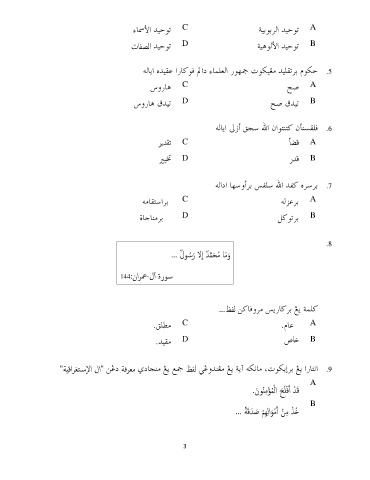 A توحيد الربوبية C توحيد الأسماء
B توحيد الألوهية D توحيد الصفات
5. حكوم برتقليد مڠيكوت جمهور العلماء دالم فركارا عقيده اياله
A صح C هاروس
B تيدق صح D تيدق هاروس
6. فلقسنأن كتنتوان الله سجق أزلي اياله
A قضأ C تقدير
B قدر D تخيير
7. برسره كفد الله سلفس برأوسها اداله
A برعزله C براستقامه
B برتوكل D برمناجاة
8.
وَمَا مُحَمَّدٌ إِلَّا رَسُولٌ ...
سورة آل-عمران:144
كلمة يڠ بركاريس مروفاكن لفظ...
A عام. C مطلق.
B خاص D مقيد.
9. انتارا يڠ برإيكوت، مانكه آية يڠ مڠندوڠي لفظ جمع يڠ منجادي معرفة دڠن "ال الإستغراقية"
A
قَدْ أَفْلَحَ الْمُؤْمِنُونَ.
B
خُذْ مِنْ أَمْوَالِهِمْ صَدَقَةً ...
3